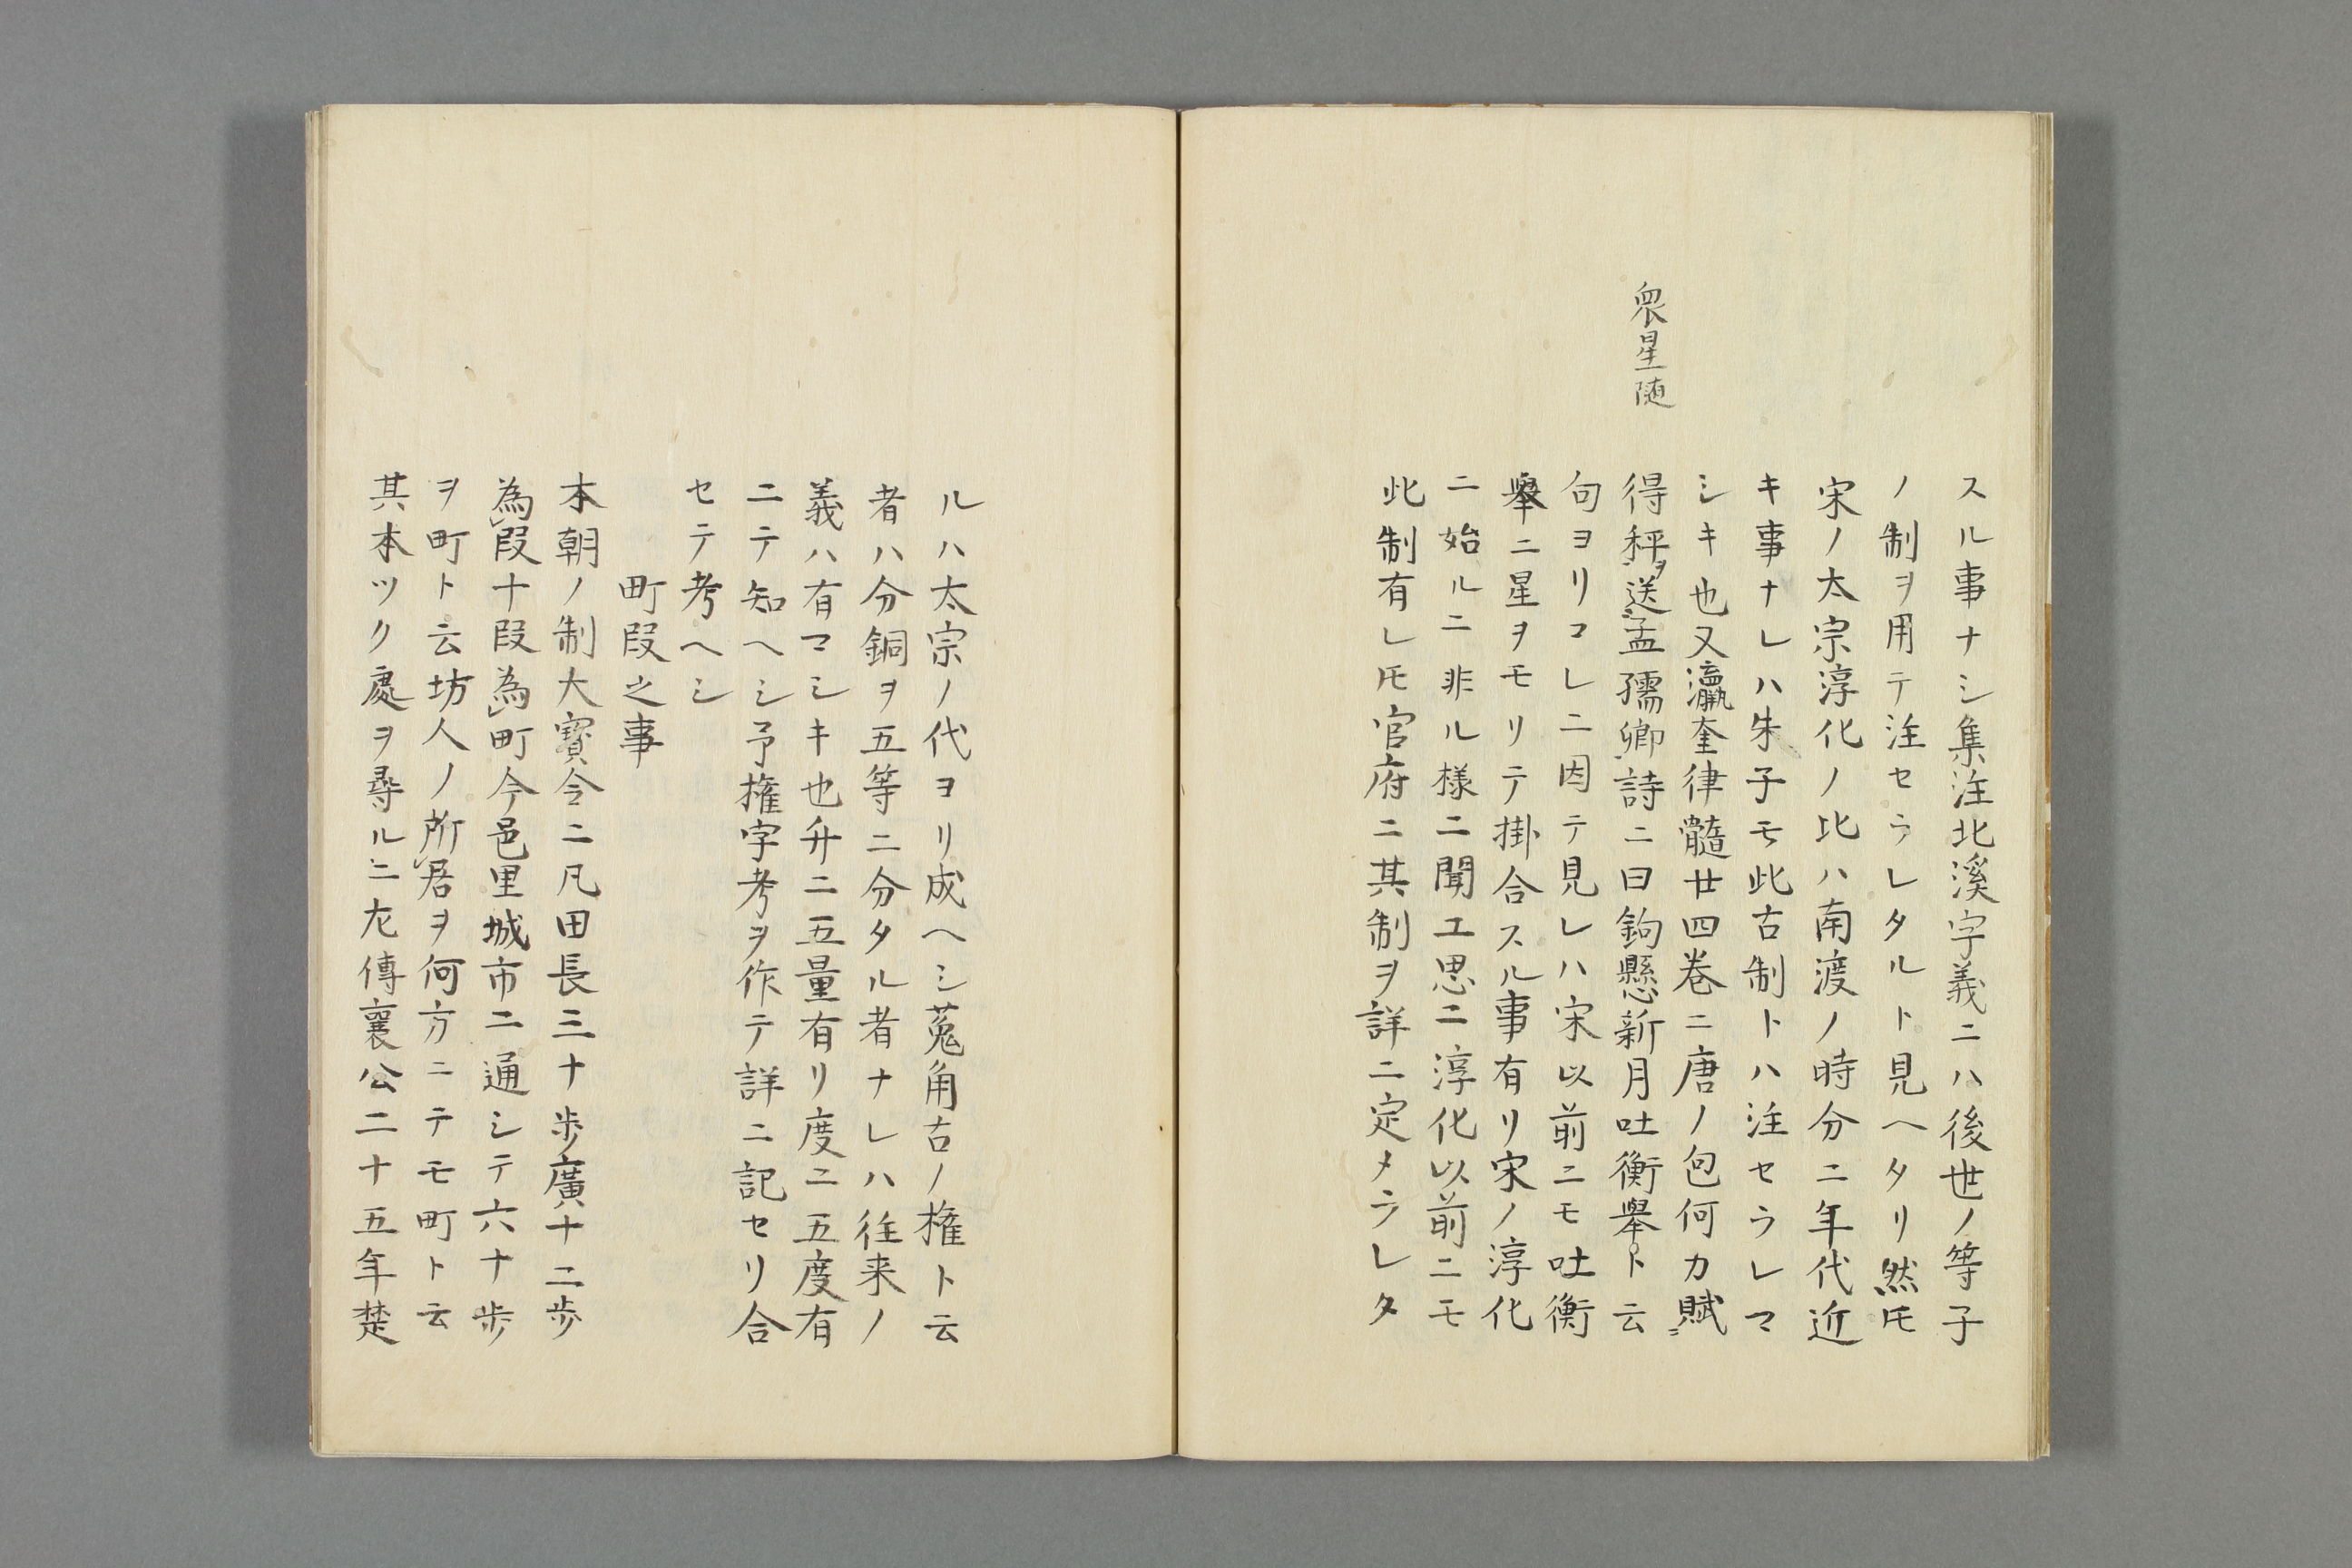 スル事ナシ集注北溪字義ニハ後世ノ等子
ノ制ヲ用テ注セラレタルト見ヘタリ然𪜈
宋ノ太宗淳化ノ比ハ南渡ノ時分ニ年代近
キ事ナレハ朱子モ此古制トハ注セラレマ
シキ也又瀛奎律髓廿四巻ニ唐ノ包何カ賦
衆星随
得秤ヲ送孟孺卿詩ニ曰鉤懸新月吐衡舉ト云
句ヨリコレニ因テ見レハ宋以前ニモ吐衡
舉ニ星ヲモリテ掛合スル事有リ宋ノ淳化
ニ始ルニ非ル様ニ聞エ思ニ淳化以前ニモ
此制有レ𪜈官府ニ其制ヲ詳ニ定メラレタ
ルハ太宗ノ代ヨリ成ヘシ菟角古ノ権ト云
者ハ分銅ヲ五等ニ分タル者ナレハ往来ノ
義ハ有マシキ也升ニ五量有リ度ニ五度有
ニテ知ヘシ予権字考ヲ作テ詳ニ記セリ合
セテ考ヘシ
町段之事
本朝ノ制大寳令ニ凡田長三十歩廣十二歩
為段十段為町今邑里城市ニ通シテ六十歩
ヲ町ト云坊人ノ所居ヲ何方ニテモ町ト云
其本ツク處ヲ尋ルニ左傳襄公二十五年楚